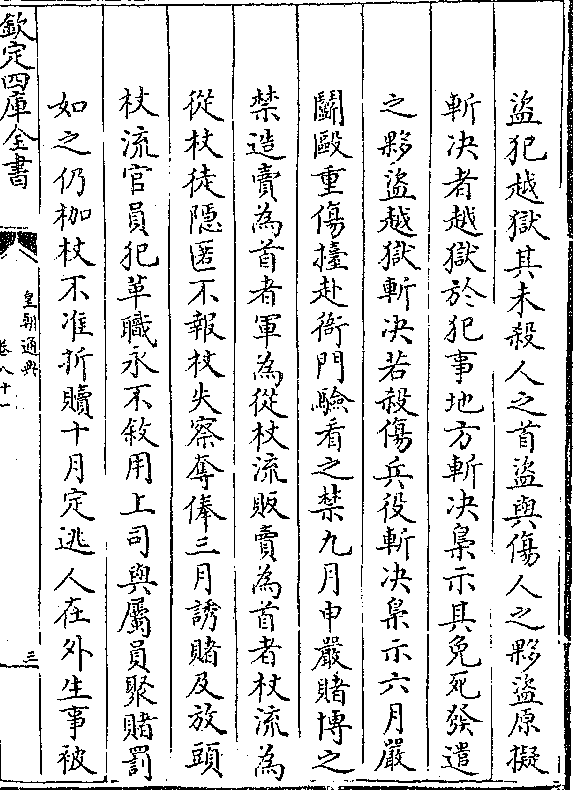 盜犯越獄其未殺人之首盜與傷人之夥盜原擬
斬决者越獄於犯事地方斬决梟示其免死發遣
之夥盜越獄斬决若殺傷兵役斬决梟示六月嚴
鬭毆重傷擡赴衙門驗看之禁九月申嚴賭博之
禁造賣為首者軍為從杖流販賣為首者杖流為
從杖徒隠匿不報杖失察奪俸三月誘賭及放頭
杖流官員犯革職永不敘用上司與屬員聚賭罰
如之仍枷杖不准折贖十月定逃人在外生事被
欽定四庫全書
皇朝通典
卷八十一
三